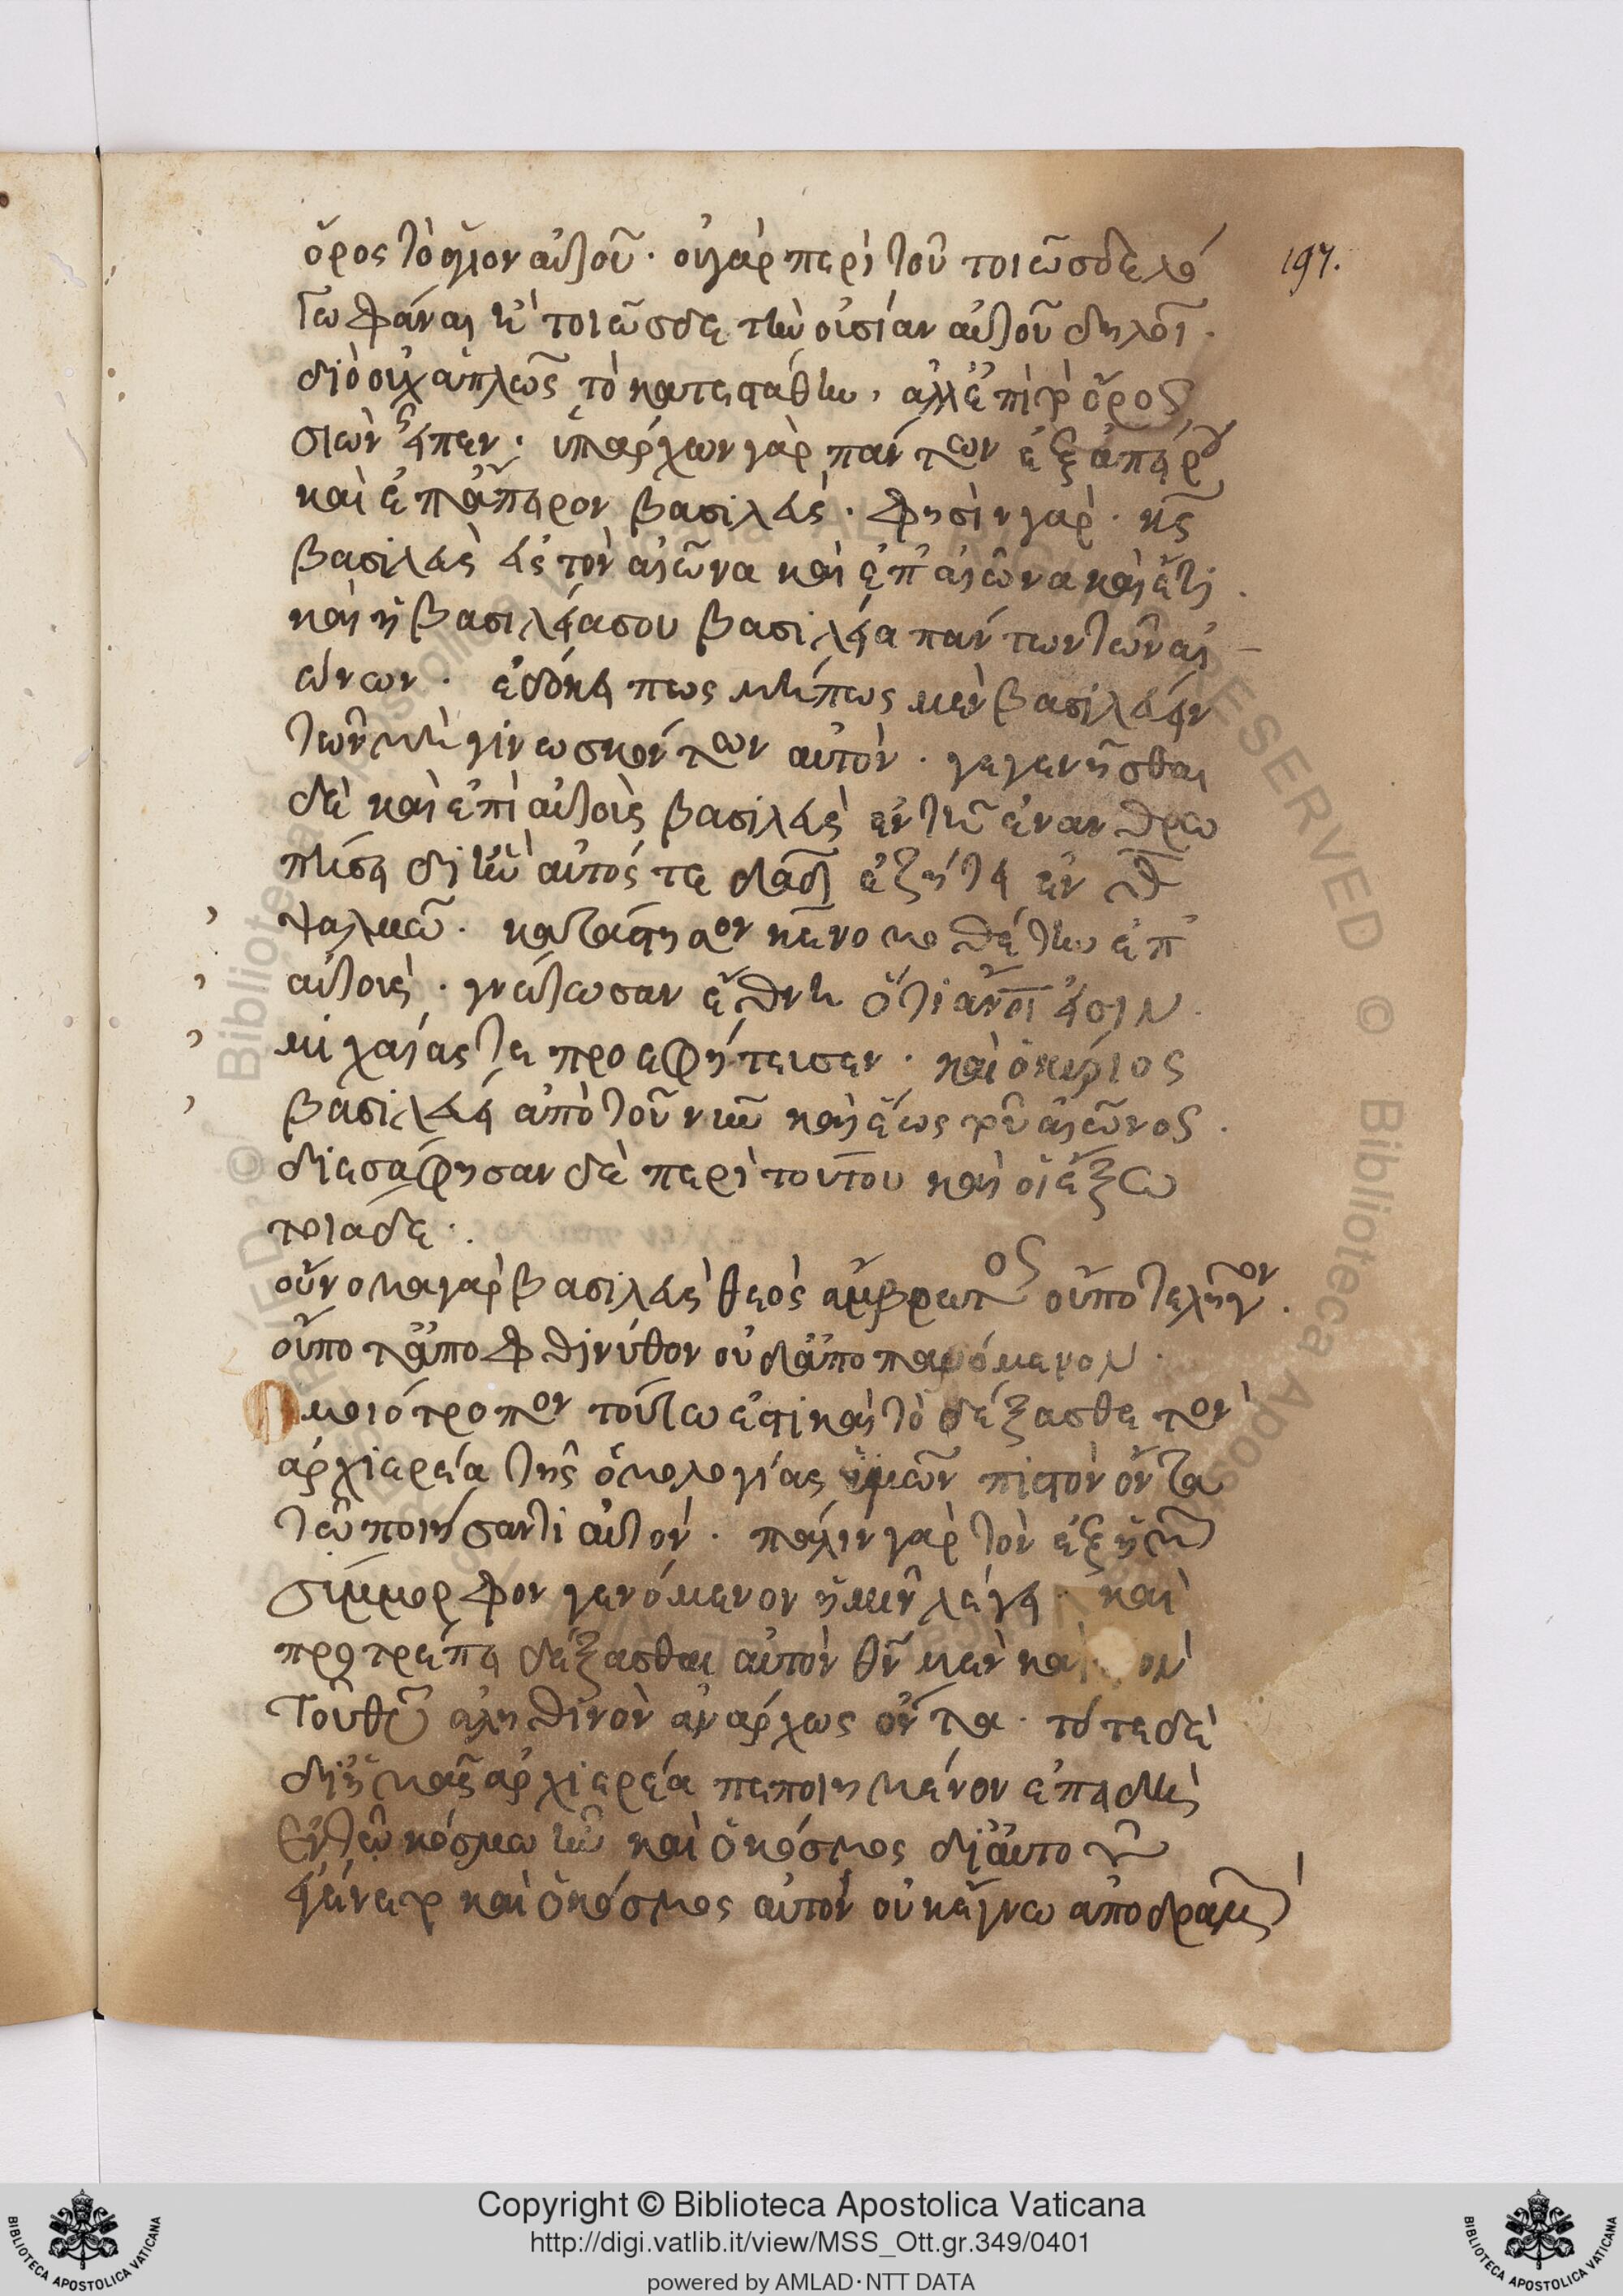 ὄρος τὸ ἅγιον αὐτοῦ · οὐ γὰρ περὶ τοῦ τοιῶσδε λό
197.
γω φάναι ἢ τοιῶσδε τὴν οὐσίαν αὐτοῦ δηλοῖ ·
διὸ οὐχ ἁπλῶς τὸ κατεστάθην, ἀλλ' ἐπὶ τὸ ὄρος
σιὼν εἶπεν · ὑπάρχων γὰρ πάντων ἐξ ἀπείρου
καὶ ἐπ' ἄπειρον βασιλεύς · φησὶν γὰρ · κς
βασιλεὺς εἰς τὸν αἰῶνα καὶ ἐπ' αἰῶνα καὶ ἔτι ·
καὶ ἡ βασιλεία σου βασιλεία πάντων τῶν αἰ
ώνων · ἐδόκει πως μήπως μὲν βασιλεύειν
τῶν μὴ γινωσκόντων αὐτόν · γεγενῆσθαι
δὲ καὶ ἐπὶ αὐτοὺς βασιλεὺς ἐν τῇ ἐνανθρω
πήσει δι' ἣν αὐτός τε δαδ ἐζήτει ἐν θ
ψαλμῷ · κατάστησον κε νομοθέτην ἐπ'
αὐτούς · γνώτωσαν ἔθνη ὅτι ανοι εἰσιν ·
μιχαίας τε προεφήτευσεν · καὶ ὁ κύριος
βασιλεύει ἀπὸ τοῦ νῦν καὶ ἕως τοῦ αἰῶνος ·
διεσάφησαν δὲ περὶ τούτου καὶ οἱ ἔξω
τοιάδε ·
οὔνομα γὰρ βασιλεὺς θεὸς ἄμβροτος οὔποτε λῆγον ·
οὔποτ' ἀποφθινύθον οὐδ' ἀποπαυόμενον ·
Ὁμοιότροπον τούτω ἐστὶ καὶ τὸ δέξασθε τὸν
ἀρχιερέα τῆς ὁμολογίας ἡμῶν πιστὸν ὄντα
τῷ ποιήσαντι αὐτόν · πάλιν γὰρ τὸν ἐξ ἡμῶν
σύμμορφον γενόμενον ἡμῖν λέγει · καὶ
προτρέπει δέξασθαι αὐτὸν θν μὲν καὶ
τοῦ θυ ἀληθινὸν ἀνάρχως ὄντα · τότε δὲ
δι' ἡμᾶς ἀρχιερέα πεποιημένον ἐπειδὴ
ἐν τῷ κόσμω ἦν καὶ ὁ κόσμος δι' αὐτοῦ
ἐγένετο καὶ ὁ κόσμος αὐτὸν οὐκ ἔγνω ἀποδραμὼν
Copyright © Biblioteca Apostolica Vaticana
http://digi.vatlib.it/view/MSS_Ott.gr.349/0401
powered by AMLAD·NTT DATA
BIBLIOTECA APOSTOLICA VATICANA
BIBLIOTECA APOSTOLICA VATICANA